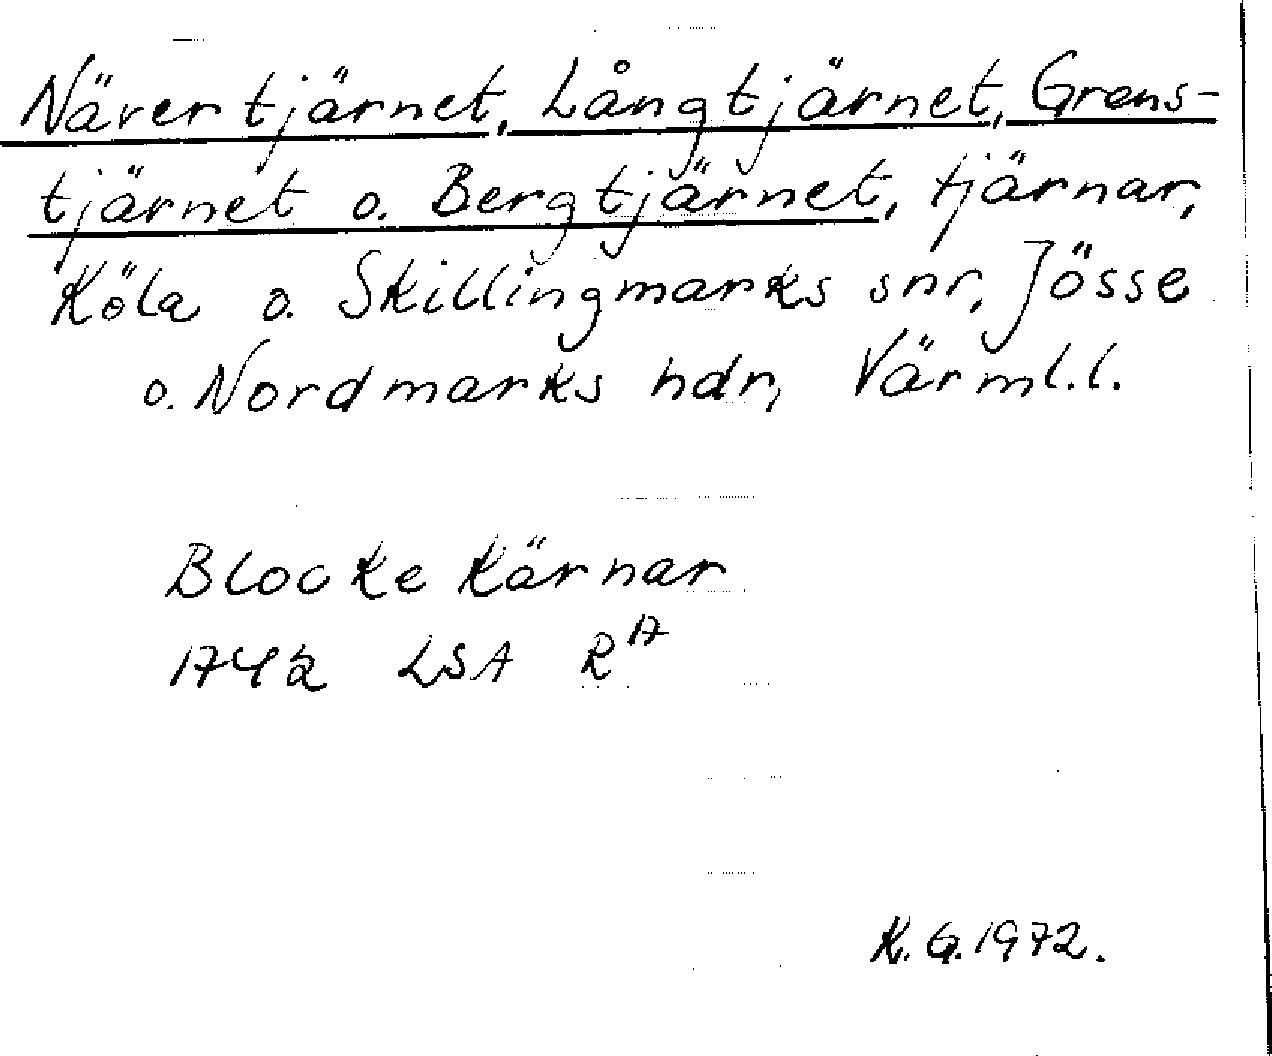 Nävertjärnet, Långtjärnet, Grens-
tjärnet o. Bergtjärnet, tjärnar,
Köla o. Skillingmarks snr, Jösse
o. Nordmarks hdr, Värml. l.
Blocke Kärnar
1742 LSA R17
K. G. 1972.